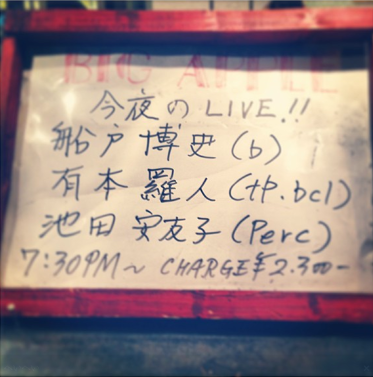 BIG APPLE
今夜の LIVE!!
船戸 博史 (b)
有本 羅人 (tp.bcl)
池田 安友子 (Perc)
7:30PM~ CHARGE ¥2.300-